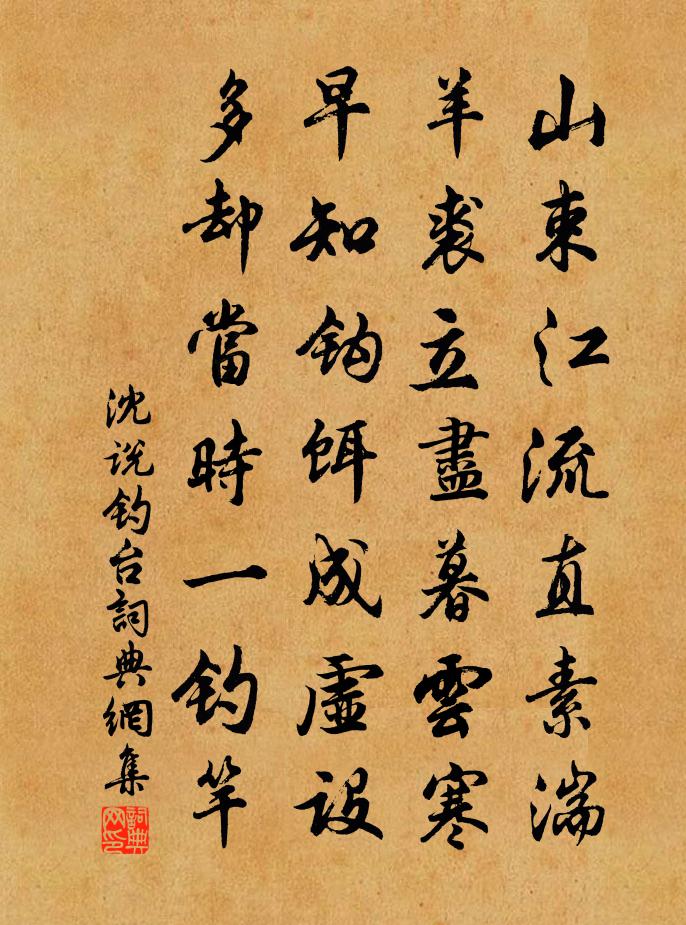 山束江流直素湍
羊裘立盡暮雲寒
早知鈎餌成虛設
多却當時一釣竿
沈说釣台詞典網集
詞典网印